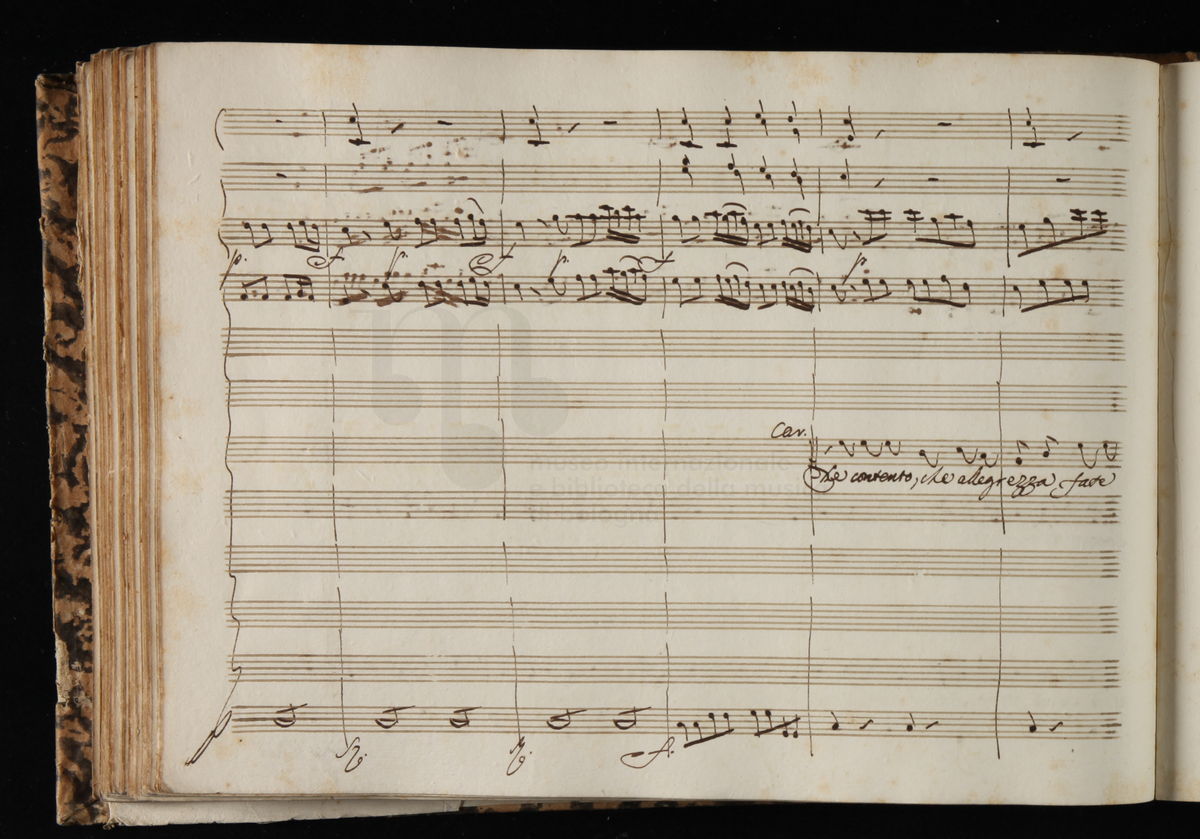 p. f p. f p. f p.
Cav.
museo internazionale
Che contento, che allegrezza fate
e biblioteca della musica
di bologna
f.